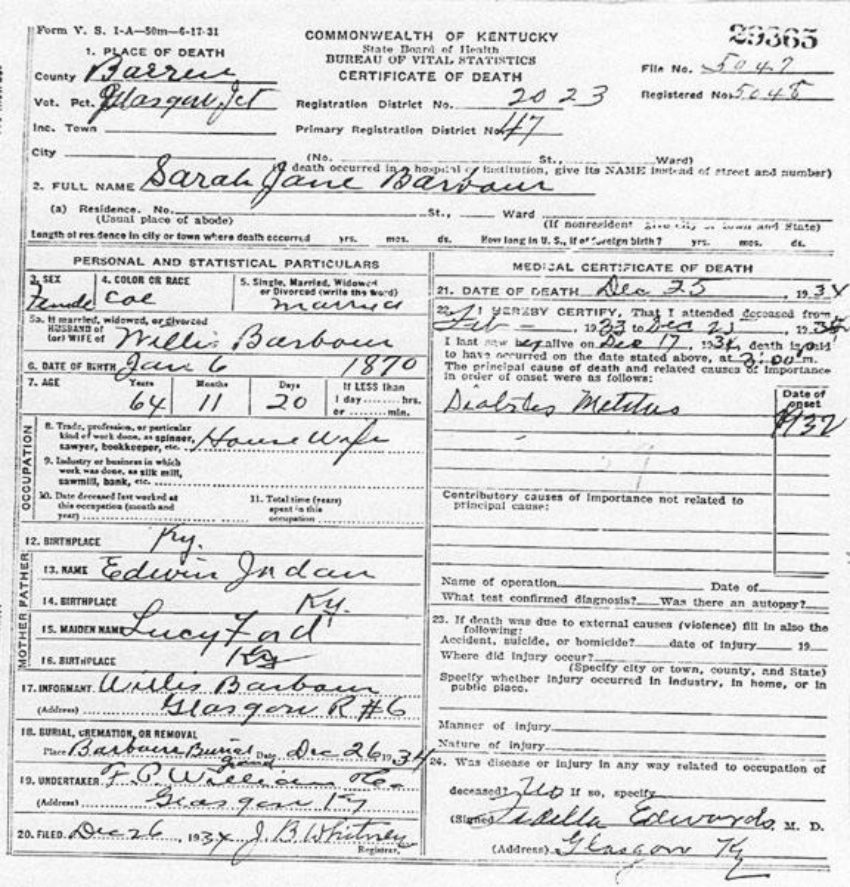 Form V. S. 1-A—50m—6-17-31
COMMONWEALTH OF KENTUCKY
State Board of Health
BUREAU OF VITAL STATISTICS
CERTIFICATE OF DEATH
29365
File No. 5047
Registered No. 5048
1. PLACE OF DEATH
County Barren
Vot. Pct. Glasgow Jct
Registration District No. 2023
Inc. Town
Primary Registration District No. 47
City (No. St., Ward)
(If death occurred in a hospital or institution, give its NAME instead of street and number)
2. FULL NAME Sarah Jane Barbour
(a) Residence. No. St., Ward
(Usual place of abode) (If nonresident give city or town and State)
Length of residence in city or town where death occurred yrs. mos. ds. How long in U. S., if of foreign birth? yrs. mos. ds.
PERSONAL AND STATISTICAL PARTICULARS
3. SEX 4. COLOR OR RACE 5. Single, Married, Widowed
or Divorced (write the word)
Female Col married
5a. If married, widowed, or divorced
HUSBAND of
(or) WIFE of Willis Barbour
6. DATE OF BIRTH Jan 6 1870
7. AGE Years Months Days If LESS than
64 11 20 1 day ........ hrs.
or ........ min.
OCCUPATION
8. Trade, profession, or particular
kind of work done, as spinner,
sawyer, bookkeeper, etc. House Wife
9. Industry or business in which
work was done, as silk mill,
sawmill, bank, etc.
10. Date deceased last worked at
this occupation (month and
year)
11. Total time (years)
spent in this
occupation
12. BIRTHPLACE Ky.
FATHER
13. NAME Edwin
14. BIRTHPLACE Ky.
MOTHER
15. MAIDEN NAME Lucy Ford
16. BIRTHPLACE Ky
17. INFORMANT Willis Barbour
(Address) Glasgow R #6
18. BURIAL, CREMATION, OR REMOVAL
Place Barbour Burial ground Date Dec 26 1934
19. UNDERTAKER F. P. William
(Address) Glasgow Ky
20. FILED Dec 26, 1934 J. B. Whitney
Registrar.
MEDICAL CERTIFICATE OF DEATH
21. DATE OF DEATH Dec 25, 1934
22. I HEREBY CERTIFY, That I attended deceased from
Feb —, 1933 to Dec 25, 19
I last saw her alive on Dec 17, 1934 death is said
to have occurred on the date stated above, at 3:00 m.
The principal cause of death and related causes of importance
in order of onset were as follows:
Date of
onset
Diabetes Melitus 1932
Contributory causes of importance not related to
principal cause:
Name of operation Date of
What test confirmed diagnosis? Was there an autopsy?
23. If death was due to external causes (violence) fill in also the
following:
Accident, suicide, or homicide? date of injury 19
Where did injury occur?
(Specify city or town, county, and State)
Specify whether injury occurred in industry, in home, or in
public place.
Manner of injury
Nature of injury
24. Was disease or injury in any way related to occupation of
deceased? No If so, specify
(Signed) Edwards, M. D.
(Address) Glasgow Ky